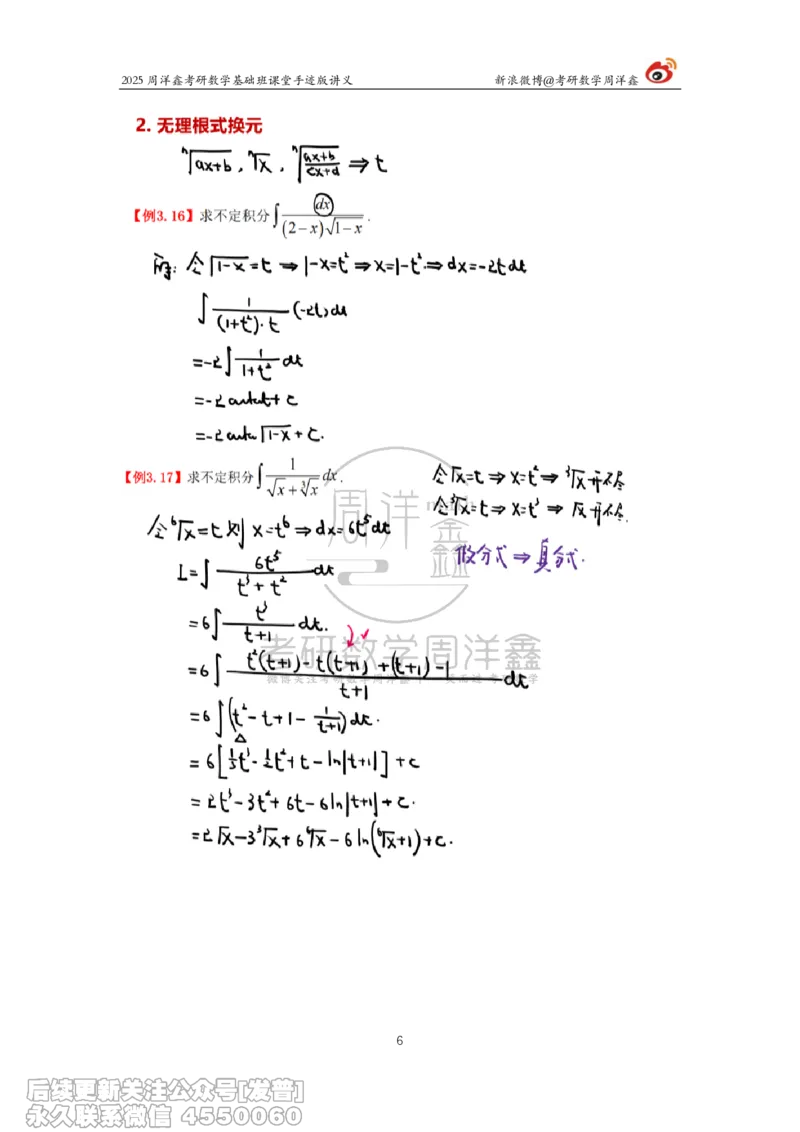 2025 周洋鑫考研数学基础班课堂手迹版讲义 新浪微博@考研数学周洋鑫
2. 无理根式换元
ⁿ√(ax+b), ⁿ√x, ⁿ√((ax+b)/(cx+d)) ⇒ t
【例3.16】求不定积分∫ dx/((2−x)√(1−x)).
解: 令√(1-x)=t ⇒ 1-x=t² ⇒ x=1-t² ⇒ dx=-2t dt
∫ 1/((1+t²)·t) (-2t) dt
=-2∫ 1/(1+t²) dt
=-2arctant+c
=-2arctan√(1-x)+c.
【例3.17】求不定积分∫ 1/(√x+³√x) dx.
令√x=t ⇒ x=t² ⇒ ³√x开不尽
令³√x=t ⇒ x=t³ ⇒ √x开不尽.
令⁶√x=t 则 x=t⁶ ⇒ dx=6t⁵dt
假分式 ⇒ 真分式.
I=∫ 6t⁵/(t³+t²) dt
=6∫ t³/(t+1) dt.
=6∫ (t²(t+1)-t(t+1)+(t+1)-1)/(t+1) dt
=6∫(t²-t+1-1/(t+1))dt.
=6[1/3t³-1/2t²+t-ln|t+1|]+c
=2t³-3t²+6t-6ln|t+1|+c.
=2√x-3³√x+6⁶√x-6ln(⁶√x+1)+c.
周洋鑫
考研数学周洋鑫
6
后续更新关注公众号[发普]
永久联系微信 4550060